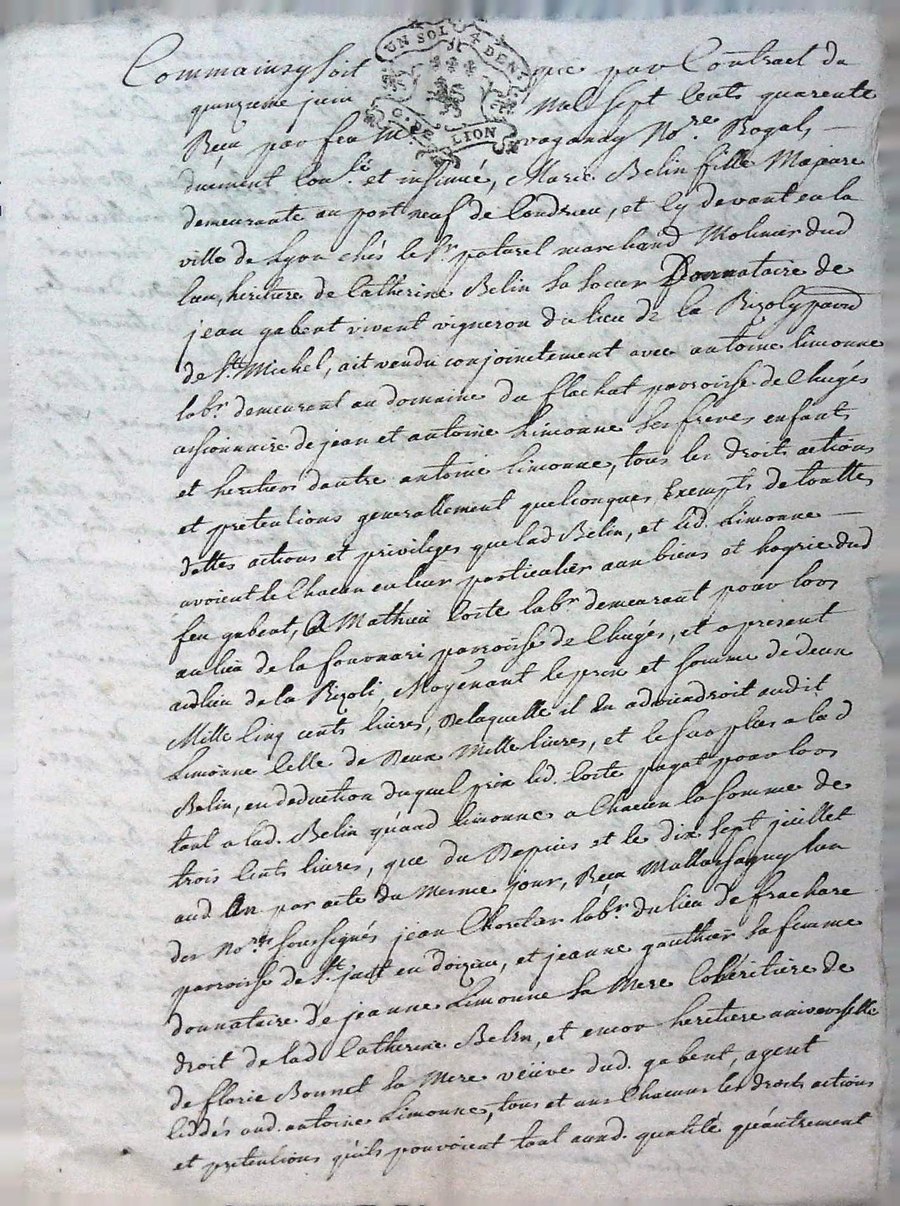 UN SOL 4 DEN.
G. DE LION
Comme ainsy soit que par Contract du
quinzieme juin Mil sept cents quarente
Reçu par feu Me vaganay Nore Royal,
duement conlé et insinué, Marie Belin fille Majeure
demeurante au port neuf de Condrieu, et cy devant en la
ville de Lyon chés le Sr paturel marchand dud
lieu, heritiere de Catherine Belin sa soeur Donnataire de
jean gabent vivent vigneron du lieu de la Rizoly parod
de St Michel, ait vendu conjoinctement avec antoine limonne
labr demeurant au domaine du flachat parroisse de Chuyés
cessionnaire de jean et antoine Limonne ses freres enfants
et heritiers d'autre antoine limonne, tous les droits actions
et pretentions generallement quelconques Exempts de touttes
dettes actions et privileges que lad Belin, et led. Limonne
avoient et Chacun en leur particulier aux biens et hoyrie dud
feu gabent, a Mathieu Coste labr demeurant pour lors
au lieu de la parroisse de Chuyés, et a present
aud lieu de la Rizoli, Moyenant le prix et somme de deux
Mille cinq cents livres, de laquelle il en adviendroit audit
Limonne celle de Deux Mille livres, et le surplus a lad
Belin, en deduction duquel prix led. Coste payat pour lors
tant a lad. Belin qu'aud limonne a Chacun la somme de
trois cents livres, que du Depuis et le dix sept juillet
aud An par acte du Mesme jour, Reçu Mallassagny l'un
des Nores soussignés jean Chorelier labr du lieu de frachare
parroisse de St just en doizieu, et jeanne gauthier sa femme
donnataire de jeanne Limonne sa Mere Cohéritiere de
droit de lad Catherine Belin, et encor heritiere universelle
de florie Bonnet sa Mere veüve dud. gabent, ayent
ceddés aud. antoine Limonne, tous et uns Chacuns les droits actions
et pretentions qu'ils pouvoient tant auxd. qualité qu'autrement